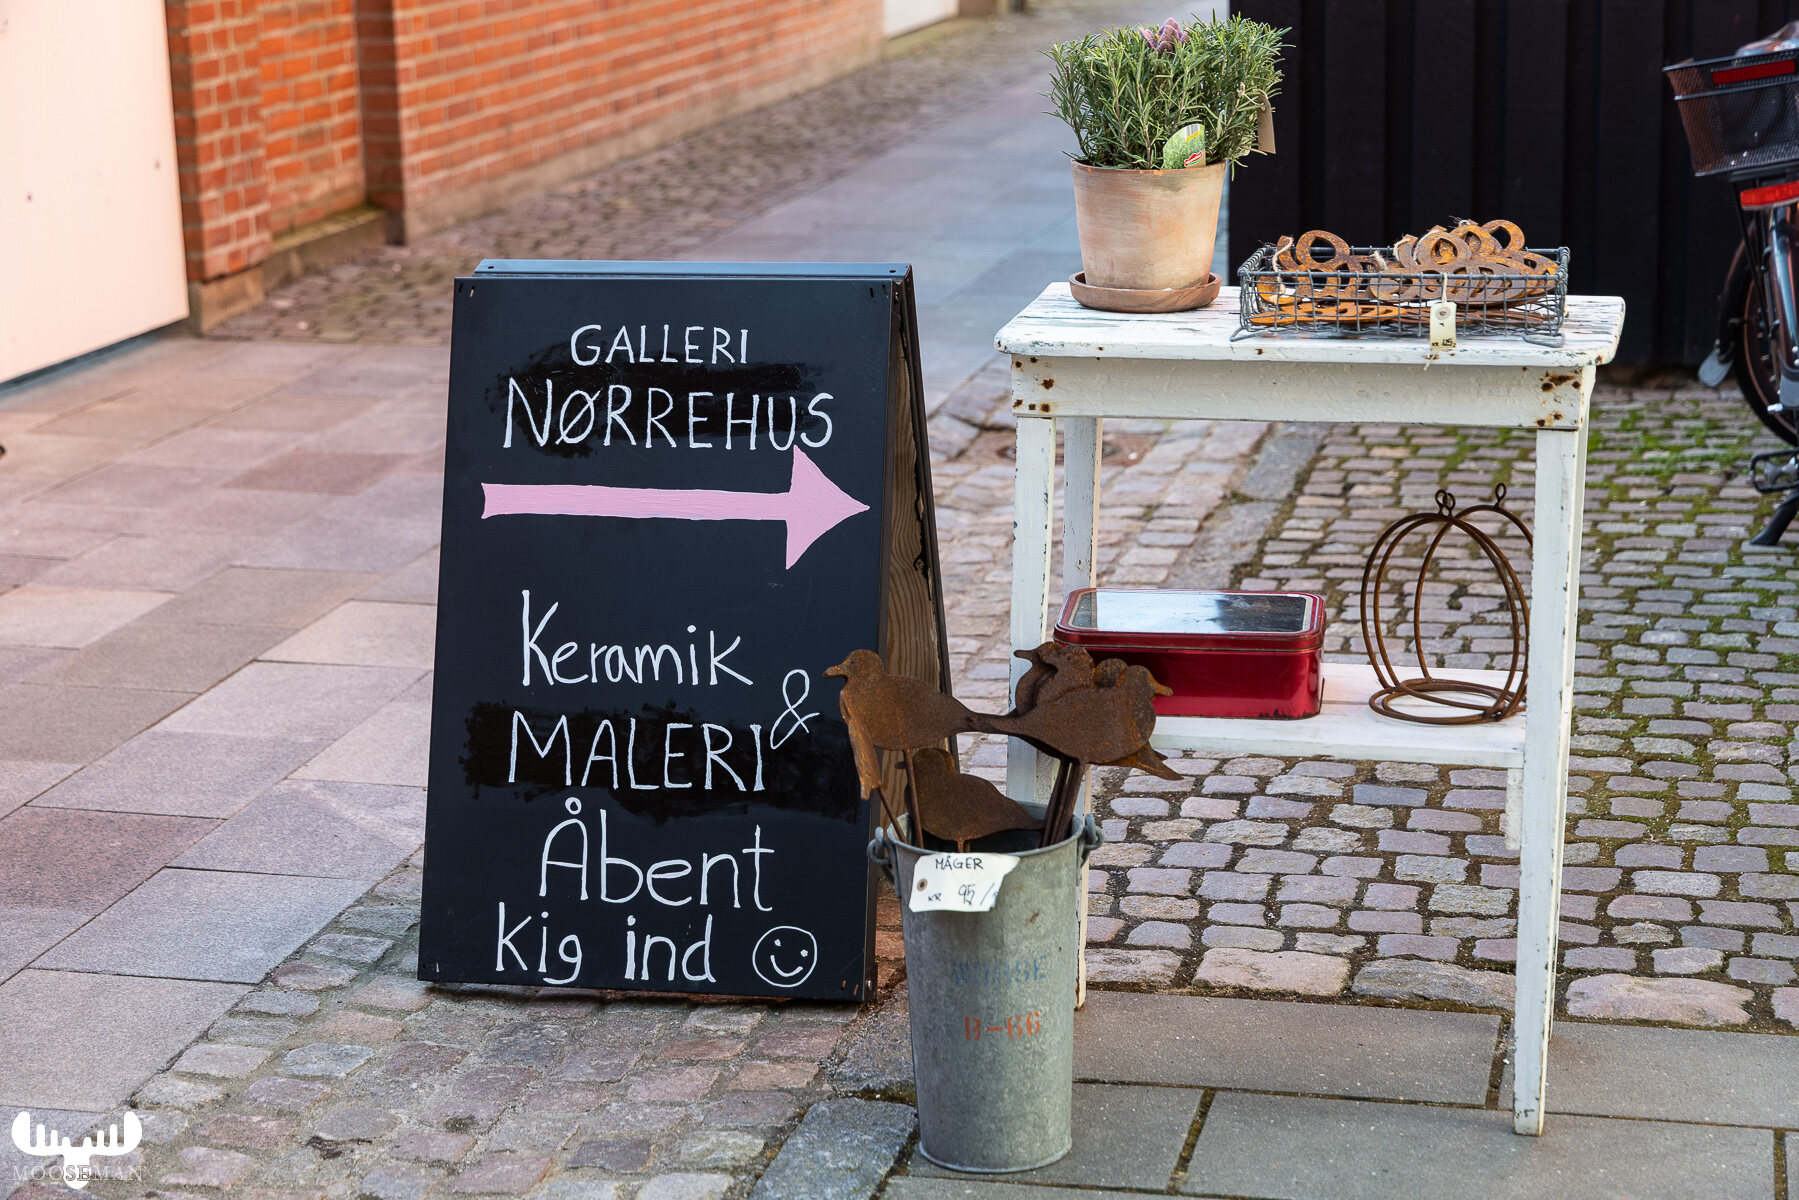 GALLERI
NØRREHUS
Keramik
&
MALERI
Åbent
Kig ind
MÅGER
KR 95
B-66
MOOSEMAN